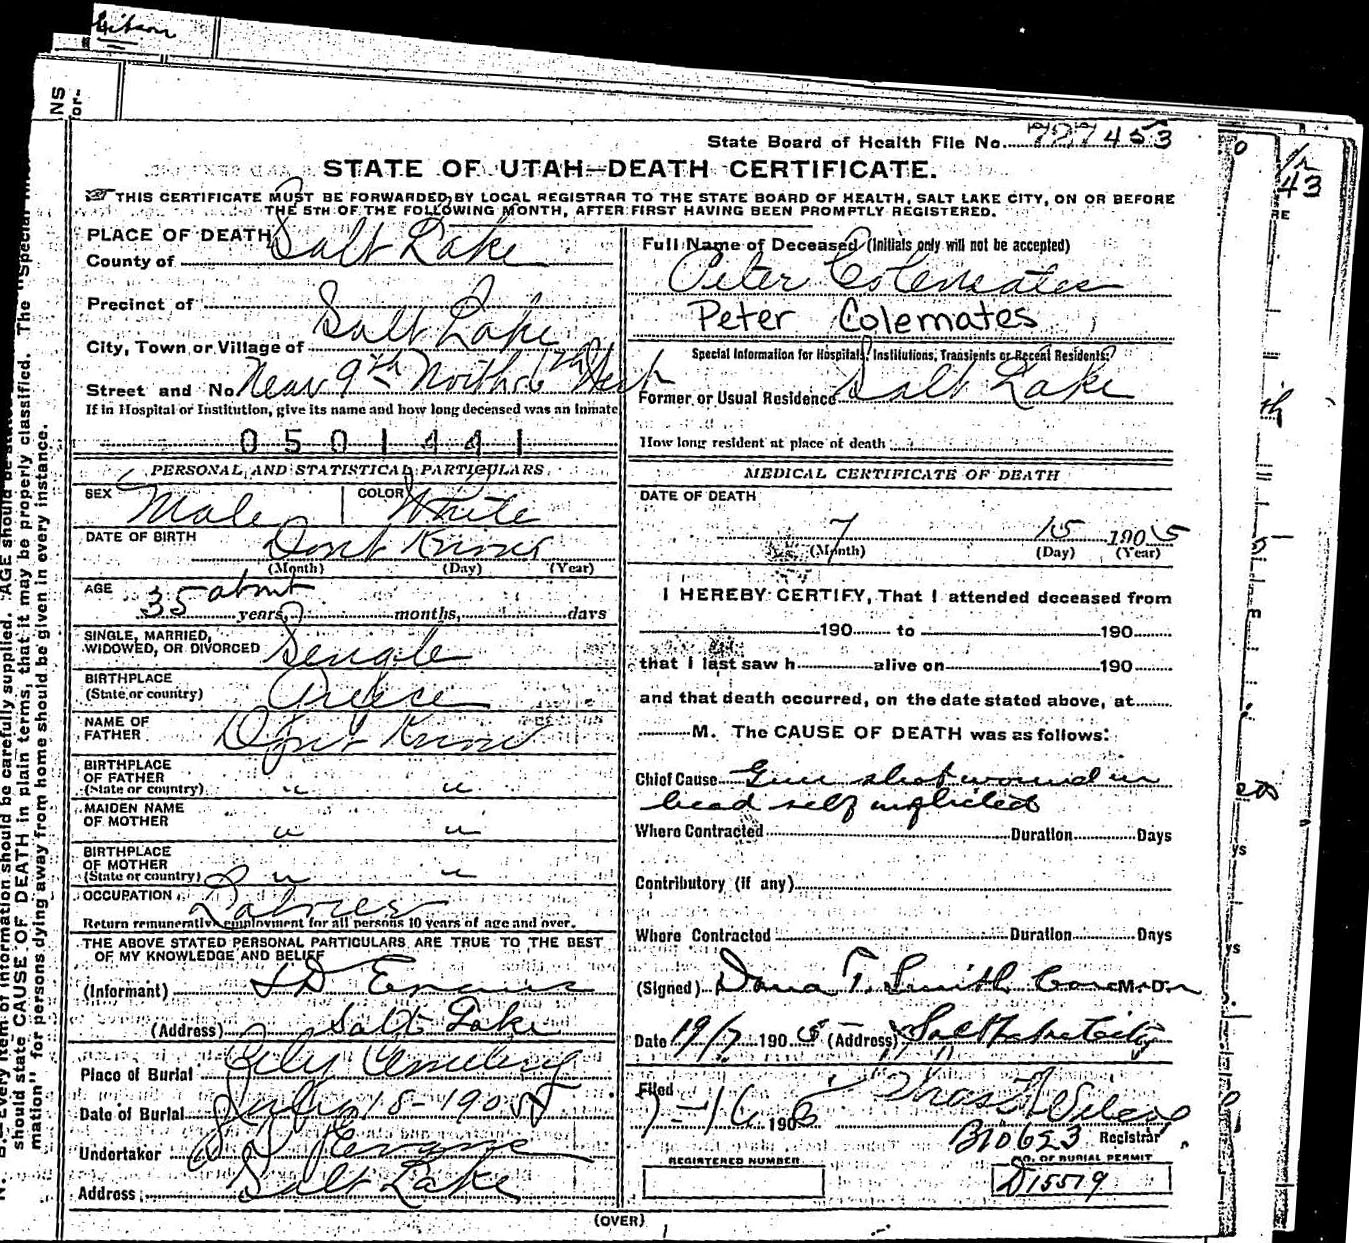 State Board of Health File No. 727453
STATE OF UTAH—DEATH CERTIFICATE.
THIS CERTIFICATE MUST BE FORWARDED BY LOCAL REGISTRAR TO THE STATE BOARD OF HEALTH, SALT LAKE CITY, ON OR BEFORE
THE 5TH OF THE FOLLOWING MONTH, AFTER FIRST HAVING BEEN PROMPTLY REGISTERED.
PLACE OF DEATH
County of Salt Lake
Precinct of
City, Town or Village of Salt Lake
Street and No. Near 9th North & 6th West
If in Hospital or Institution, give its name and how long deceased was an inmate
0501441
PERSONAL AND STATISTICAL PARTICULARS
SEX Male
COLOR White
DATE OF BIRTH Dont Know
(Month) (Day) (Year)
AGE 35 about years, months, days
SINGLE, MARRIED,
WIDOWED, OR DIVORCED Single
BIRTHPLACE
(State or country) Greece
NAME OF
FATHER Dont Know
BIRTHPLACE
OF FATHER
(State or country) " "
MAIDEN NAME
OF MOTHER " "
BIRTHPLACE
OF MOTHER
(State or country) " "
OCCUPATION Laborer
Return remunerative employment for all persons 10 years of age and over.
THE ABOVE STATED PERSONAL PARTICULARS ARE TRUE TO THE BEST
OF MY KNOWLEDGE AND BELIEF
(Informant) S D Evans
(Address) Salt Lake
Place of Burial City Cemetery
Date of Burial July 18-1905
Undertaker S D Evans
Address Salt Lake
Full Name of Deceased (Initials only will not be accepted)
Peter Colemates
Peter Colemates
Special Information for Hospitals, Institutions, Transients or Recent Residents:
Former or Usual Residence Salt Lake
How long resident at place of death
MEDICAL CERTIFICATE OF DEATH
DATE OF DEATH
7 15 1905
(Month) (Day) (Year)
I HEREBY CERTIFY, That I attended deceased from
190 to 190
that I last saw h alive on 190
and that death occurred, on the date stated above, at
M. The CAUSE OF DEATH was as follows:
Chief Cause Gun shot wound in
head self inflicted
Where Contracted Duration Days
Contributory (if any)
Where Contracted Duration Days
(Signed) Dana T. Smith M. D.
Date 19/7 1905 (Address) Salt Lake City
Filed
190
B10653 Registrar
REGISTERED NUMBER
NO. OF BURIAL PERMIT
D15519
(OVER)
N. B.—Every item of information should be carefully supplied. AGE should be
should state CAUSE OF DEATH in plain terms, that it may be properly classified. The "Special
mation" for persons dying away from home should be given in every instance.